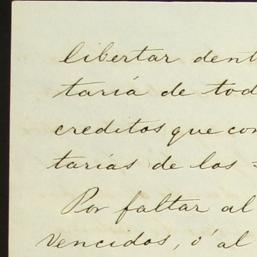 libertar dent
taría de tod
creditos que con
tarias de los
Por faltar al
vencidos, ó al